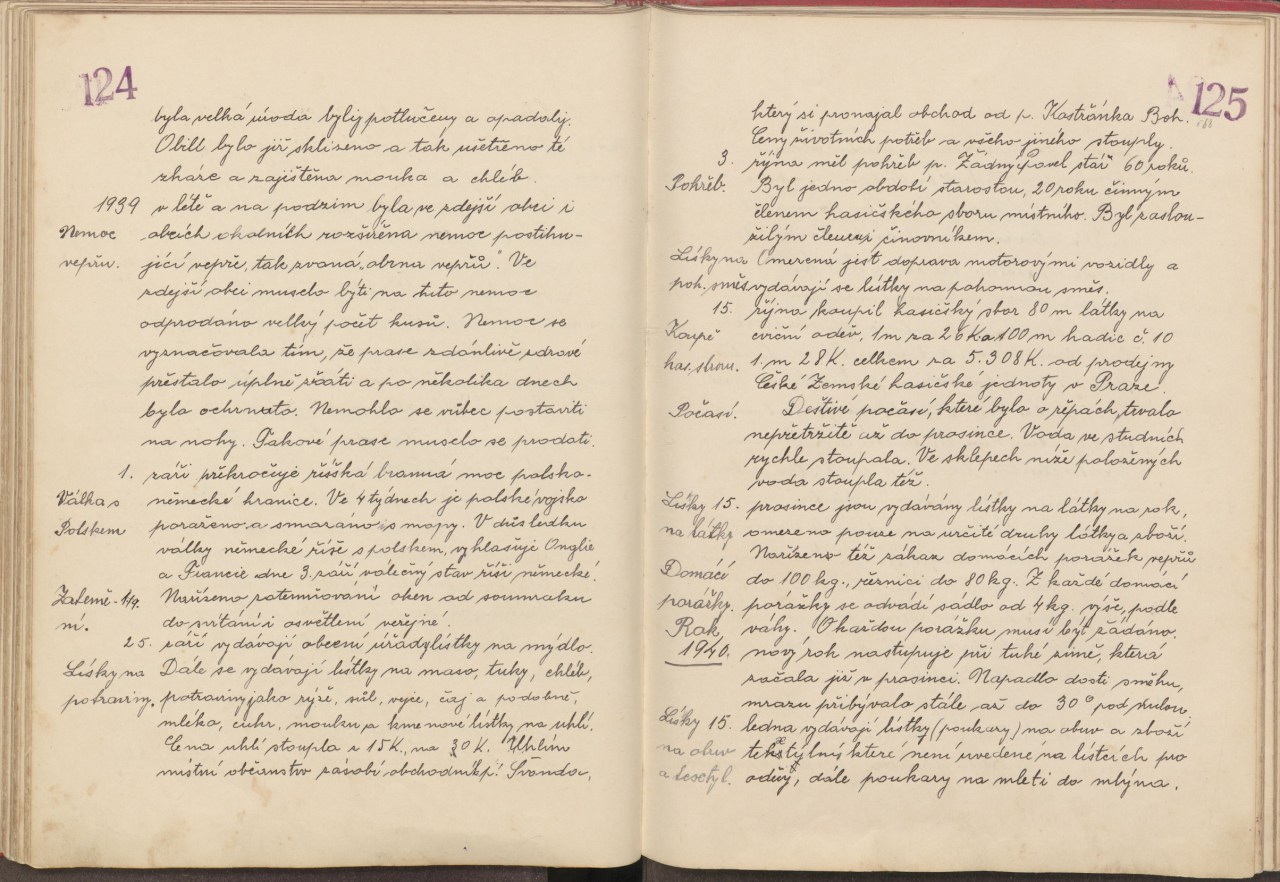 124
byla velká úroda byly potlučeny a opadaly.
Obilí bylo již sklizeno a tak ušetřeno té
zkáze a zajištěna mouka a chléb.
1939 v létě a na podzim byla ve zdejší obci i
Nemoc obcích okolních rozšířena nemoc postihu-
vepřů. jící vepře, tak zvaná „obrna vepřů". Ve
zdejší obci muselo býti na tuto nemoc
odprodáno velký počet kusů. Nemoc se
vyznačovala tím, že prase zdánlivě zdravé
přestalo úplně žráti a po několika dnech
bylo ochrnuto. Nemohlo se vůbec postaviti
na nohy. Takové prase muselo se prodati.
1. září překročuje říšská branná moc polsko-
Válka s německé hranice. Ve 4 týdnech je polské vojsko
Polskem poraženo a smazáno s mapy. V důsledku
války německé říše s polskem, vyhlašuje Anglie
a Francie dne 3. září válečný stav říši německé.
Zatemě- 1/9. Nařízeno zatemňování oken od soumraku
ní. do svítání i osvětlení veřejné.
25. září vydávají obecní úřady lístky na mýdlo.
Lísky na Dále se vydávají lístky na maso, tuky, chléb,
potraviny. potraviny jako rýže, sůl, vejce, čaj a podobně,
mléko, cukr, mouku, a kmenové lístky na uhlí.
Cena uhlí stoupla z 15 K., na 30 K. Uhlím
místní občanstvo zásobí obchodník p. Švanda,
125
který si pronajal obchod od p. Kastřánka Boh.
Ceny životních potřeb a všeho jiného stouply.
3. října měl pohřeb p. Žádný Pavel stář 60 roků.
Pohřeb. Byl jedno období starostou, 20 roků činným
členem hasičského sboru místního. Byl zaslou-
žilým členem činovníkem.
Lísky na Omezená jest doprava motorovými vozidly a
poh. směs vydávají se lístky na pohonnou směs.
15. října koupil hasičský sbor 80 m látky na
Koupě cviční oděv, 1m za 26 K a 100 m hadic č. 10
has. sboru. 1. m 28 K. celkem za 5.308 K. od prodejny
České Zemské hasičské jednoty v Praze.
Počasí. Deštivé počasí, které bylo o řepách, trvalo
nepřetržitě až do prosince. Voda ve studních
rychle stoupala. Ve sklepech níže položených
voda stoupla též.
Lísky 15. prosince jsou vydávány lístky na látky na rok,
na látky omezeno pouze na určité druhy látky a zboží.
Nařízeno též zákaz domácích porážek vepřů
Domácí do 100 kg., řezníci do 80 kg. Z každé domácí
porážky. porážky se odvádí sádlo od 4 kg. výše, podle
Rok váhy. O každou porážku musí být žádáno.
1940. nový rok nastupuje při tuhé zimě, která
začala již v prosinci. Napadlo dosti sněhu,
mrazu přibývalo stále až do 30° pod nulou.
Lísky 15. ledna vydávají lístky (poukazy) na obuv a zboží
na obuv textylní které není uvedené na lístcích pro
a textyl. oděvy, dále poukazy na mletí do mlýna.